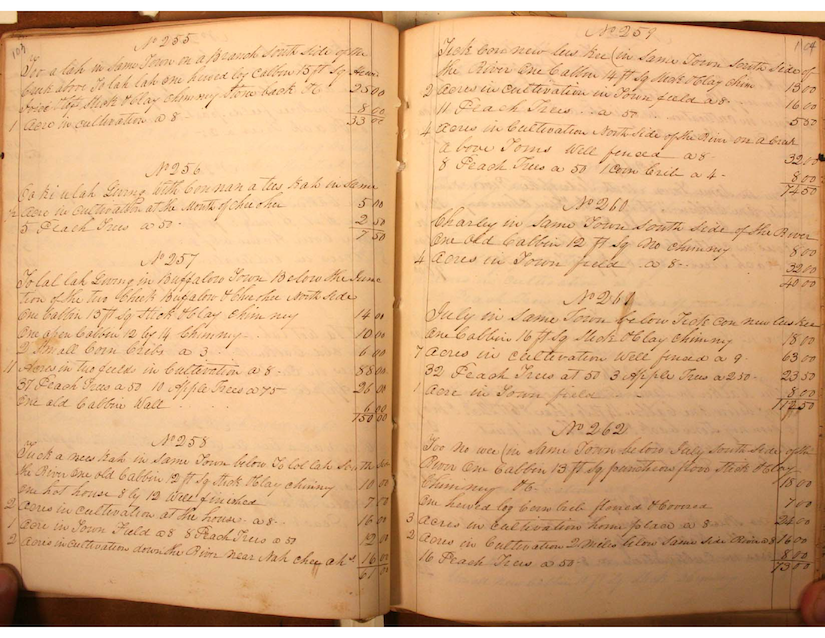 104
No 255
Too a lah in Same Town on a Branch South Side of the
Creek above To lah lah one hewed log Cabbin 15 ft Sq
Stick & Clay Chimney Stone back & 25 00
1 Acre in Cultivation a 8 8 00
33 00
No 256
Living with in Same
½ Acre in Cultivation at the Mouth of Cheohee 5 00
5 Peach Trees a 50 2 50
7 50
No 257
To lal lah Living in Buffalow Town Below the Junc
tion of the two Creek Buffalow & Cheohee North Side
One Cabbin 15 ft Sq Stick & Clay Chimney 14 00
One open Cabbin 12 by 14 Chimney 10 00
2 Small Corn Cribs a 3 6 00
11 Acres in two fields in Cultivation a 8 88 00
37 Peach Trees a 50 10 Apple Trees a 75 26 00
One old Cabbin Wall 6 00
150 00
No 258
Tuck a mees kah in Same Town below To lol lah South Side
the River One old Cabbin 12 ft Sq Stick & Clay Chimney 10 00
One hot house 8 by 12 Well finished 7 00
2 Acres in Cultivation at the house a 8 16 00
1 Acre in Town Field a 8 8 Peach Trees a 50 12 00
2 Acres in Cultivation down the River near Nah chee ah 16 00
61 00
104
No 259
Tick Con new lus kee (in Same Town South Side of
the River One Cabbin 14 ft Sq Stick & Clay Chim 15 00
2 Acres in Cultivation in Town field a 8 16 00
11 Peach Trees a 50 5 50
4 Acres in Cultivation North Side of the River on a Creek
above Toms Well fenced a 8 32 00
8 Peach Trees a 50 1 Corn Crib a 4 8 00
74 50
No 260
Charley in Same Town South Side of the River
One Old Cabbin 12 ft Sq No Chimney 8 00
4 Acres in Town field a 8 32 00
40 00
No 261
July in Same Town below Tick con new lus kee
One Cabbin 16 ft Sq Stick & Clay Chimney 18 00
7 Acres in Cultivation Well fenced a 9 63 00
32 Peach Trees at 50 3 Apple Trees a 2 50 23 50
1 Acre in Town field 8 00
112 50
No 262
Too No wee (in Same Town below July South Side of the
River One Cabbin 13 ft Sq puncheon floor Stick & Clay
Chimney & 18 00
One hewed log Corn Crib floored & Covered 7 00
3 Acres in Cultivation home place a 8 24 00
2 Acres in Cultivation 2 Miles below Same Side River a 8 16 00
16 Peach Trees a 50 8 00
73 00